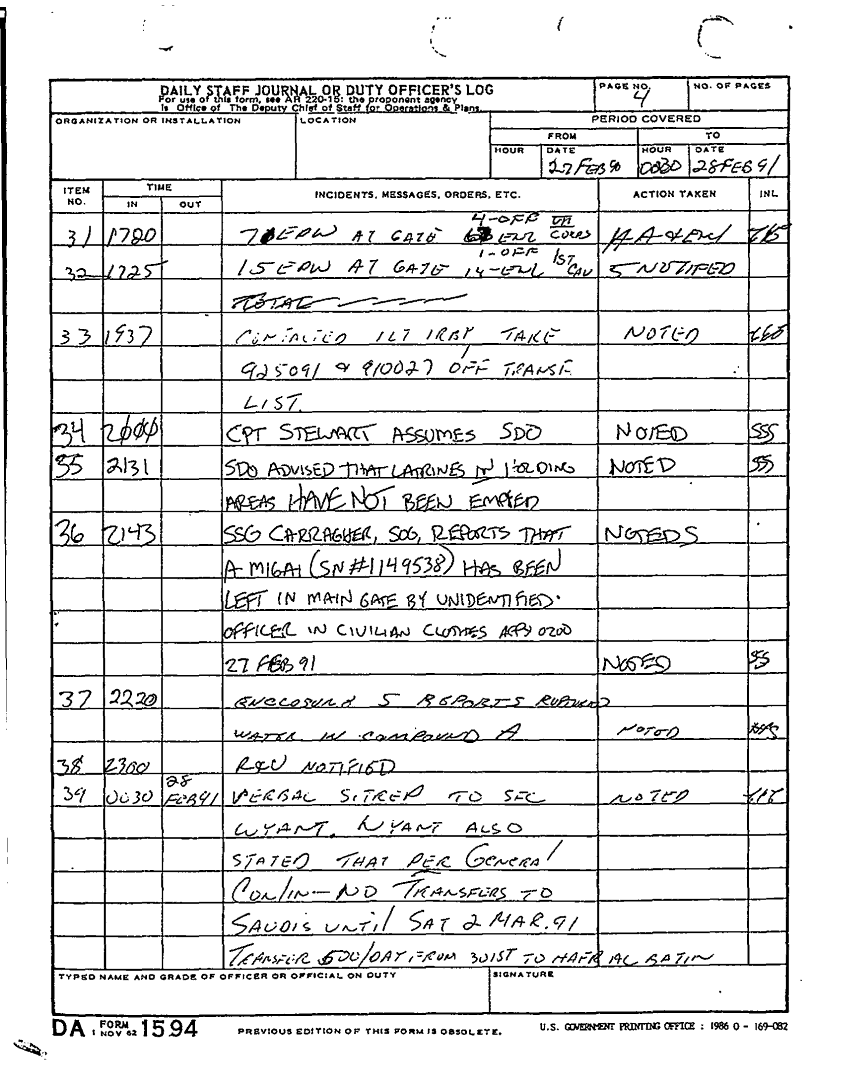 DAILY STAFF JOURNAL OR DUTY OFFICER'S LOG
For use of this form, see AR 220-15; the proponent agency
is Office of The Deputy Chief of Staff for Operations & Plans.
PAGE NO.
4
NO. OF PAGES
ORGANIZATION OR INSTALLATION
LOCATION
PERIOD COVERED
FROM
TO
HOUR DATE HOUR DATE
27 FEB 0030 28 FEB 91
ITEM NO.
TIME
IN OUT
INCIDENTS, MESSAGES, ORDERS, ETC.
ACTION TAKEN
INL
4-OFF
31 EPW AT GATE ENL CORPS
1-OFF 1ST
32 1725 15 EPW AT GATE 14-ENL CAV 5 NOTIFED
TOTAL
33 1937 CONTACTED 1LT IRBY TAKE NOTED
925091 & 910027 OFF TRANSF.
LIST.
34 2000 CPT STEWART ASSUMES SDO NOTED SSS
35 2131 SDO ADVISED THAT LATRINES IN HOLDING NOTED SS
AREAS HAVE NOT BEEN EMPTIED
36 2143 SSG CARRAGHER, SOG, REPORTS THAT NOTED
A M16A1 (SN#1149538) HAS BEEN
LEFT IN MAIN GATE BY UNIDENTIFIED
OFFICER IN CIVILIAN CLOTHES 0200
27 FEB 91 NOTED SS
37 2220 ENCLOSURE 5 REPORTS
WATER IN COMPOUND A NOTED
38 2300 R&U NOTIFIED
28
39 0030 FEB 91 VERBAL SITREP TO SFC NOTED
WYANT. WYANT ALSO
STATED THAT PER General
Conlin-NO TRANSFERS TO
SAUDIS UNTIL SAT 2 MAR. 91
TRANSFER 500/DAY FROM 301ST TO HAFR AL BATIN
TYPED NAME AND GRADE OF OFFICER OR OFFICIAL ON DUTY
SIGNATURE
DA FORM 1594
1 NOV 62
PREVIOUS EDITION OF THIS FORM IS OBSOLETE.
U.S. GOVERNMENT PRINTING OFFICE : 1986 O - 169-082